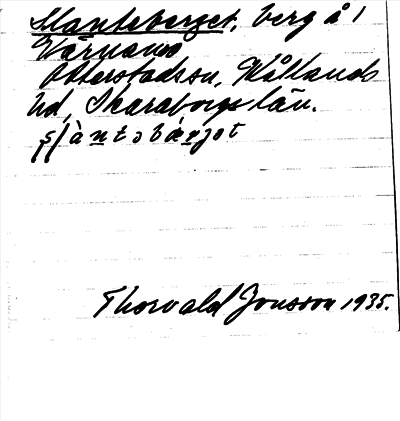 Slanteberget, berg å 1
Värnamo
Otterstadson, Kållands
hd, Skaraborgs län.
Thorvald Jonsson 1935.